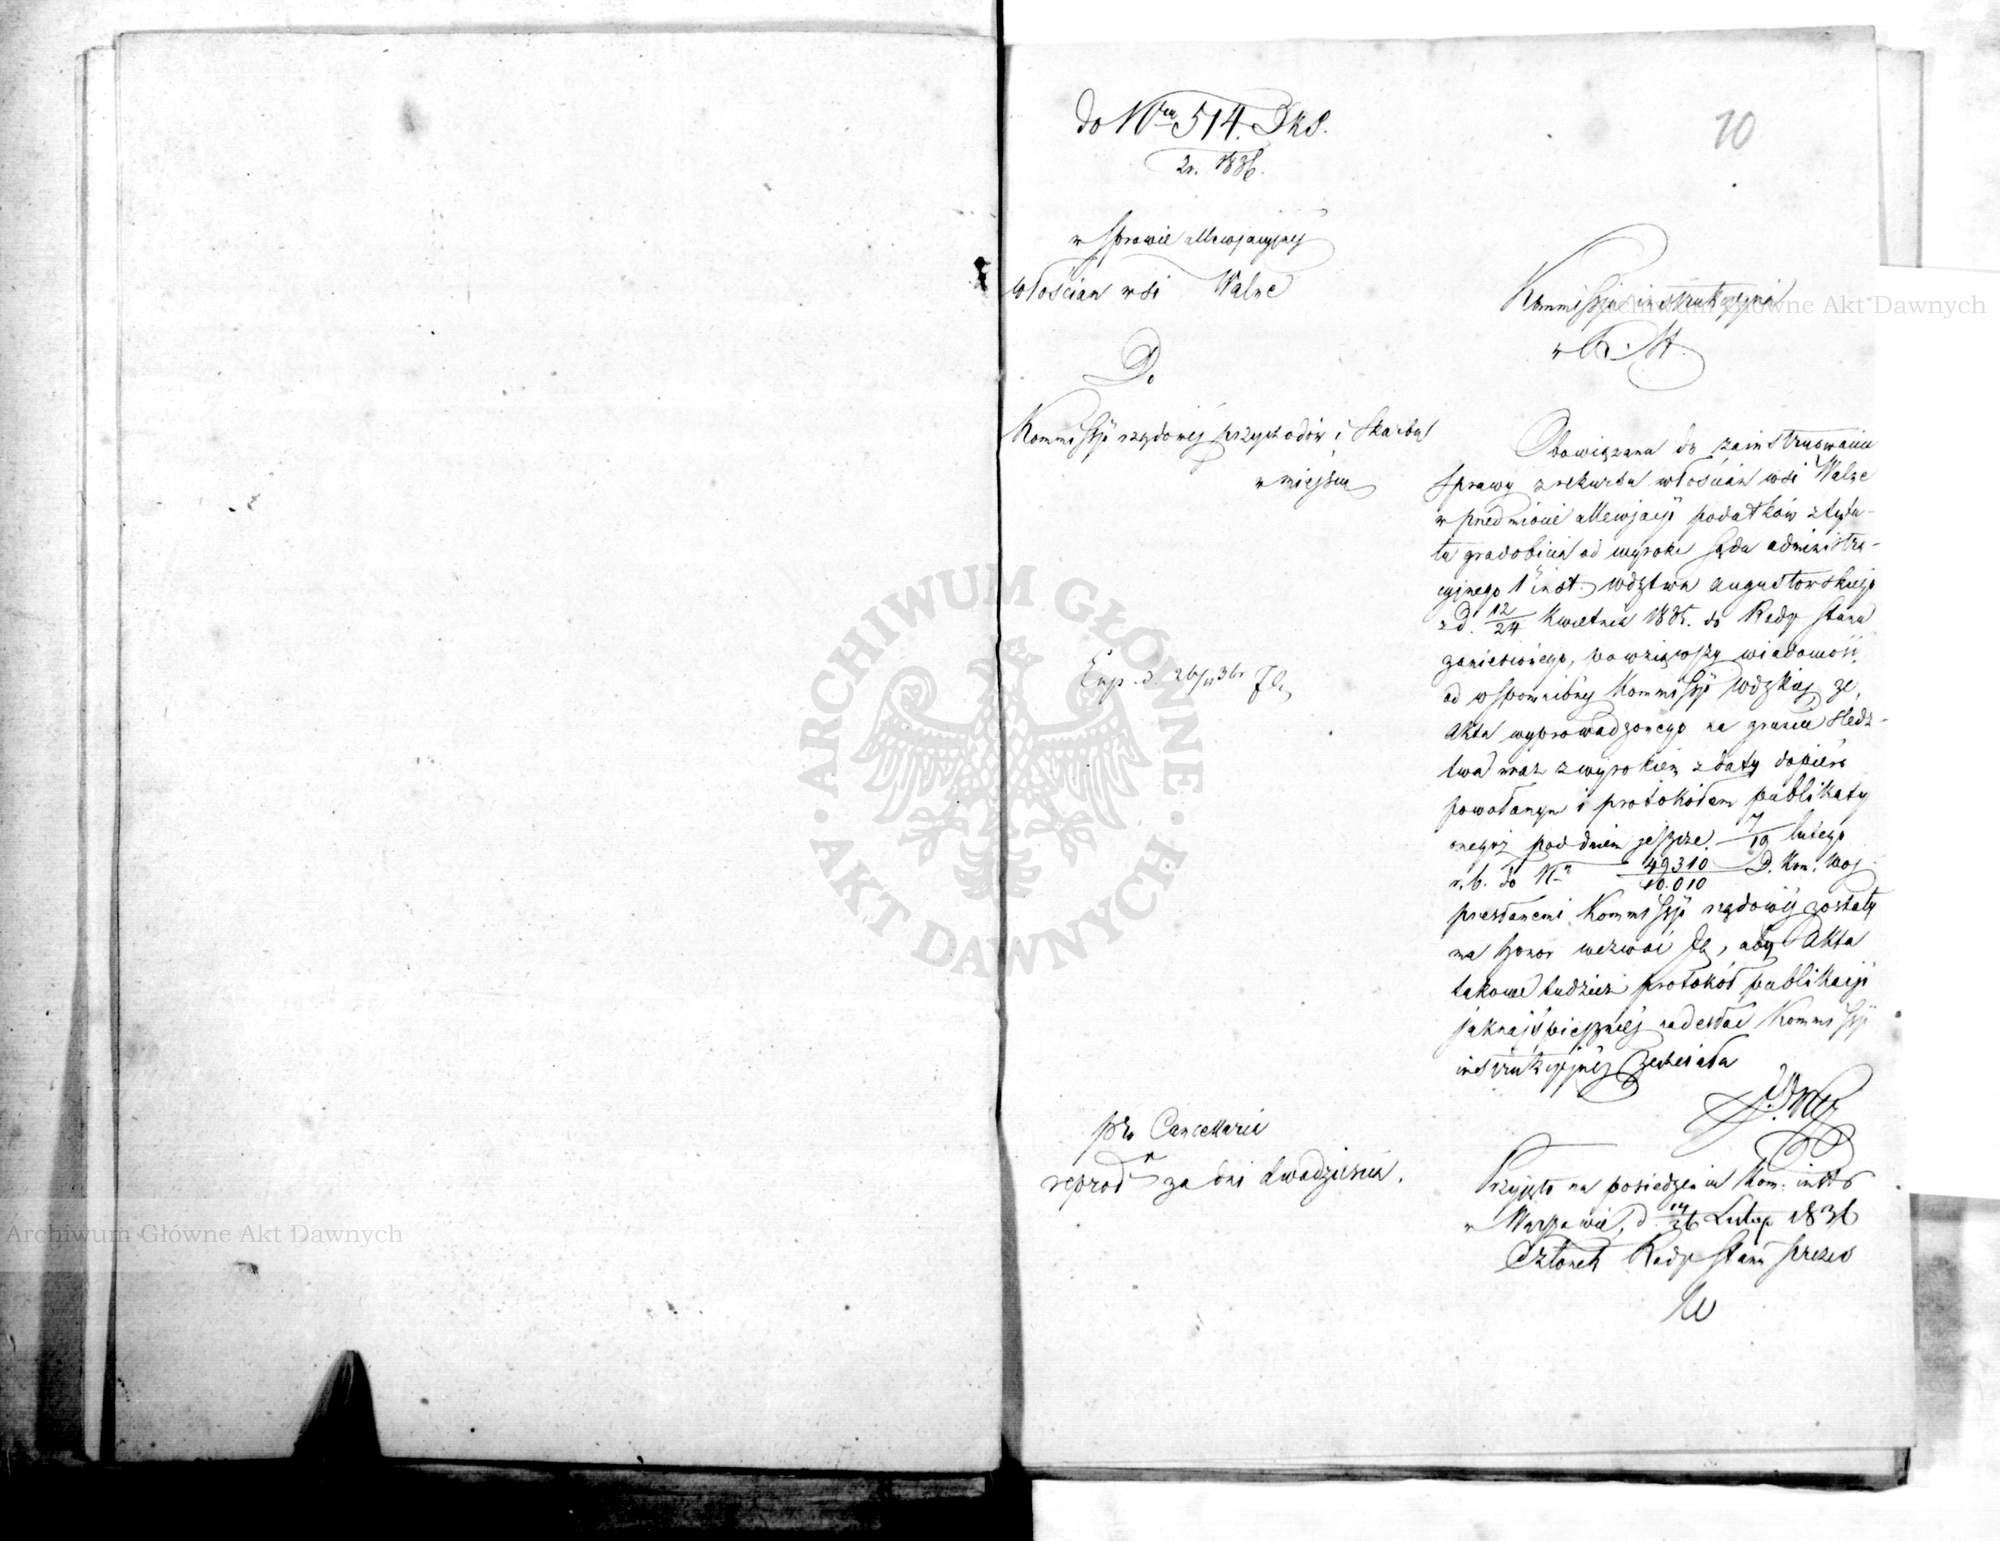 do Nru 514. D.R.S.
z r. 1836.
10
w sprawie allewjacyjnéj
włościan wsi Walne
Do
Kommissyi rządowéj przychodów i Skarbu
w miejscu
Kommissyja instrukcyjna
w R. St.
Obowiązana do zainstruowania
sprawy z rekursu włościan wsi Walne
w przedmiocie allewjacyi podatków z tytu-
łu gradobicia od wyroku Sądu administra-
cyjnego 1éj inst. wdztwa Augustowskiego
z d. 12/24 Kwietnia 183. do Rady Stanu
zaniesionego, powziąwszy wiadomość
od wspomnionéj Kommissyi Wdzkiéj, że
Akta wyprowadzonego na gruncie sledz-
twa wraz z wyrokiem z daty dopiéro
powołanym i protokółem publikaty
onegoż pod dniem jeszcze 7/19 lutego
r. b. do Nru 49310/10.010 D. Kom. Woj.
przesłanemi Kommissyi rządowéj zostały
ma honor wezwać Ją, aby Akta
takowe tudzież protokół publikacyi
jaknajspieszniéj nadesłać Kommissyi
instrukcyjnéj zechciała
Exp. d. 26/II 36r
pro Cancellaria
reprod. za dni dwadzieścia.
Przyjęto na posiedzeniu Kom. instr.
w Warszawie, d. 14/26 Lutego 1836
Członek Rady Stanu Prezes
Archiwum Główne Akt Dawnych
Archiwum Główne Akt Dawnych
ARCHIWUM GŁÓWNE AKT DAWNYCH